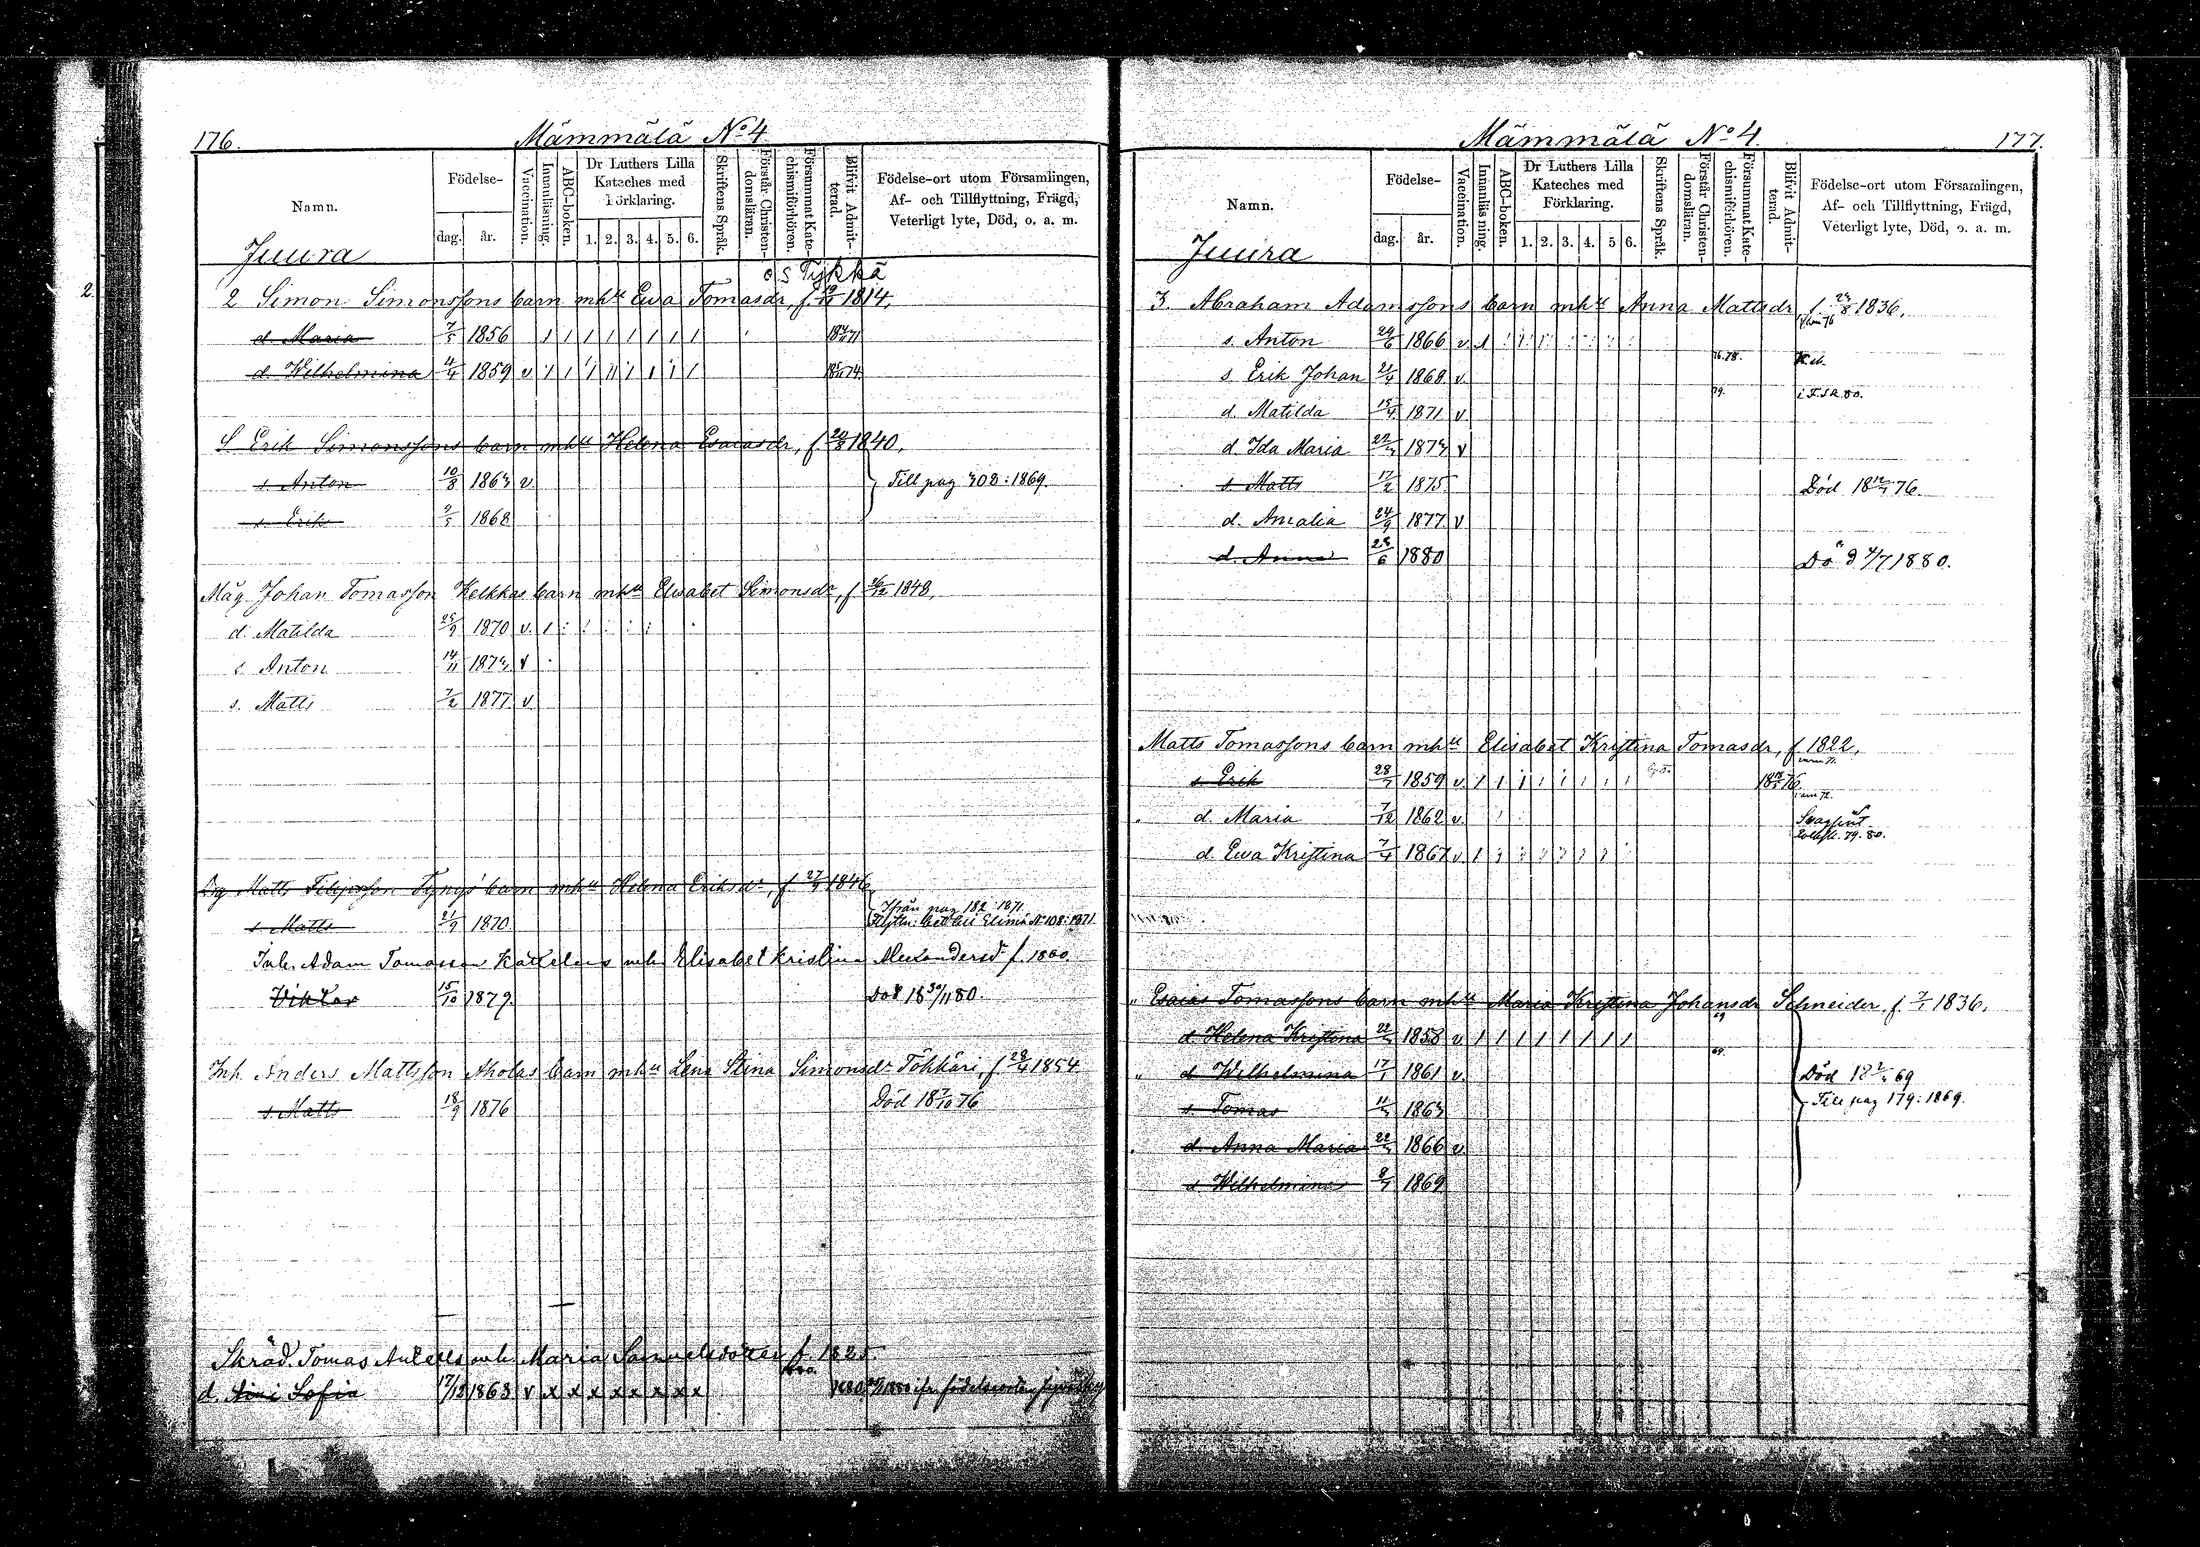 176.
Mämmälä No 4
Namn.
Födelse-
dag.
år.
Vaccination.
Innanläsning.
ABC-boken.
Dr Luthers Lilla
Kateches med
Förklaring.
1. 2. 3. 4. 5. 6.
Skriftens Språk.
Förstår Christen-
domsläran.
Försummat Kate-
chismiförhören.
Blifvit Admit-
terad.
Födelse-ort utom Församlingen,
Af- och Tillflyttning, Frägd,
Veterligt lyte, Död, o. a. m.
Juura
Tykkä
2 Simon Simonssons barn mhu Ewa Tomasdr, f. 1814,
d. Maria 7/5 1856
d. Wilhelmina 4/4 1859 v
S Erik Simonssons barn mhu Helena Esaiasdr, f. 1840,
s Anton 1863 v. Till pag 302: 1869.
s. Erik 9/5 1868
Måg Johan Tomasson Kelkkas barn mhu Elisabet Simonsdr, f 26/12 1848,
d. Matilda 25/9 1870 v.
s Anton 14/11 1873 v
s. Matts 7/2 1877 v.
Matts Filipsson Tyngs barn mhu Helena Eriksdr, f 27/9 1846,
Ifrån pag 182: 1871.
s Matts 21/9 1870 Elimä No 108: 1871.
Inh. Adam Tomasson Kattelus mh. Elisabet Kristina Alexandersdr f. 1860.
Viktor 15/10 1879. Död 18 30/11 80.
Inh Anders Mattsson Aholas barn mhu Lena Stina Simonsdr Töhkäri, f 28/4 1854
s. Matts 18/9 1876 Död 18 7/10 76
2
Skräd. Tomas mh. Maria Samuelsdotter f. 1825.
d. Sofia 17/12 1863 v x x x x x x x x
177.
Mämmälä No 4.
Namn.
Födelse-
dag.
år.
Vaccination.
Innanläsning.
ABC-boken.
Dr Luthers Lilla
Kateches med
Förklaring.
1. 2. 3. 4. 5 6.
Skriftens Språk.
Förstår Christen-
domsläran.
Försummat Kate-
chismiförhören.
Blifvit Admit-
terad.
Födelse-ort utom Församlingen,
Af- och Tillflyttning, Frägd,
Veterligt lyte, Död, o. a. m.
Juura
3. Abraham Adamssons barn mhu Anna Mattsdr, f. 1836,
s. Anton 1866 v.
s. Erik Johan 21/4 1868 v. 76.78.
d. Matilda 15/4 1871 v 79.
d. Ida Maria 1873 v
s. Matts 17/2 1875. Död 18 76.
d. Amalia 24/9 1877 v
d. Anna 1880 Död 4/7 1880.
Matts Tomassons barn mhu Elisabet Kristina Tomasdr, f 1822,
s. Erik 1859 v. 76.
d. Maria 7/12 1862 v. Svagsint
79. 80.
d. Ewa Kristina 7/4 1867 v
Esaias Tomassons barn mhu Maria Kristina Johansdr Schneider, f. 7/1 1836,
d. Helena Kristina 1858 v
d Wilhelmina 17/1 1861 v. 69. Död 18 69
s. Tomas 1863 Till pag 179: 1869.
d. Anna Maria 1866 v.
d Wilhelmina 1869